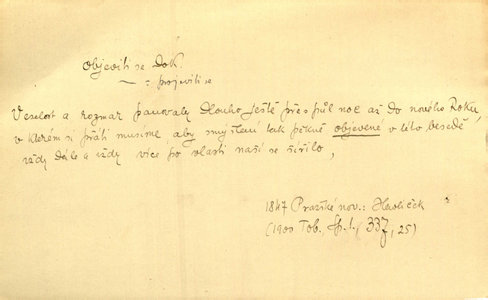 Objeviti se dok.
— : projeviti se
Veselost a rozmar panovaly dlouho ještě přes půl noc až do nového Roku,
v kterém si přáti musíme, aby smýšlení tak pěkně objevené v této besedě
vždy dále a vždy více po vlasti naší se šířilo,
1847 Pražské nov.: Havlíček
(1900 Tob. Sp. I, 337, 25)